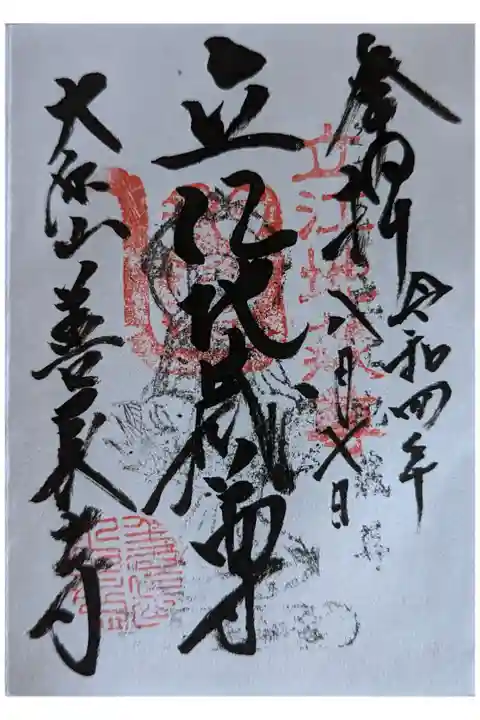 奉拝
令和四年
八月七日
立江地蔵尊
立江地蔵尊
山 善 寺